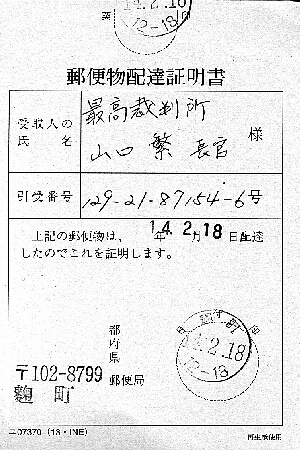 14.2.18
12-18
郵便物配達証明書
受取人の氏名
最高裁判所
山口 繁 長官 様
引受番号
129-21-87154-6号
上記の郵便物は、14年2月18日配達
したのでこれを証明します。
都府県
〒102-8799
麹町 郵便局
麹町
14.2.18
12-18
ニ07370 (13・INE)
再生紙使用